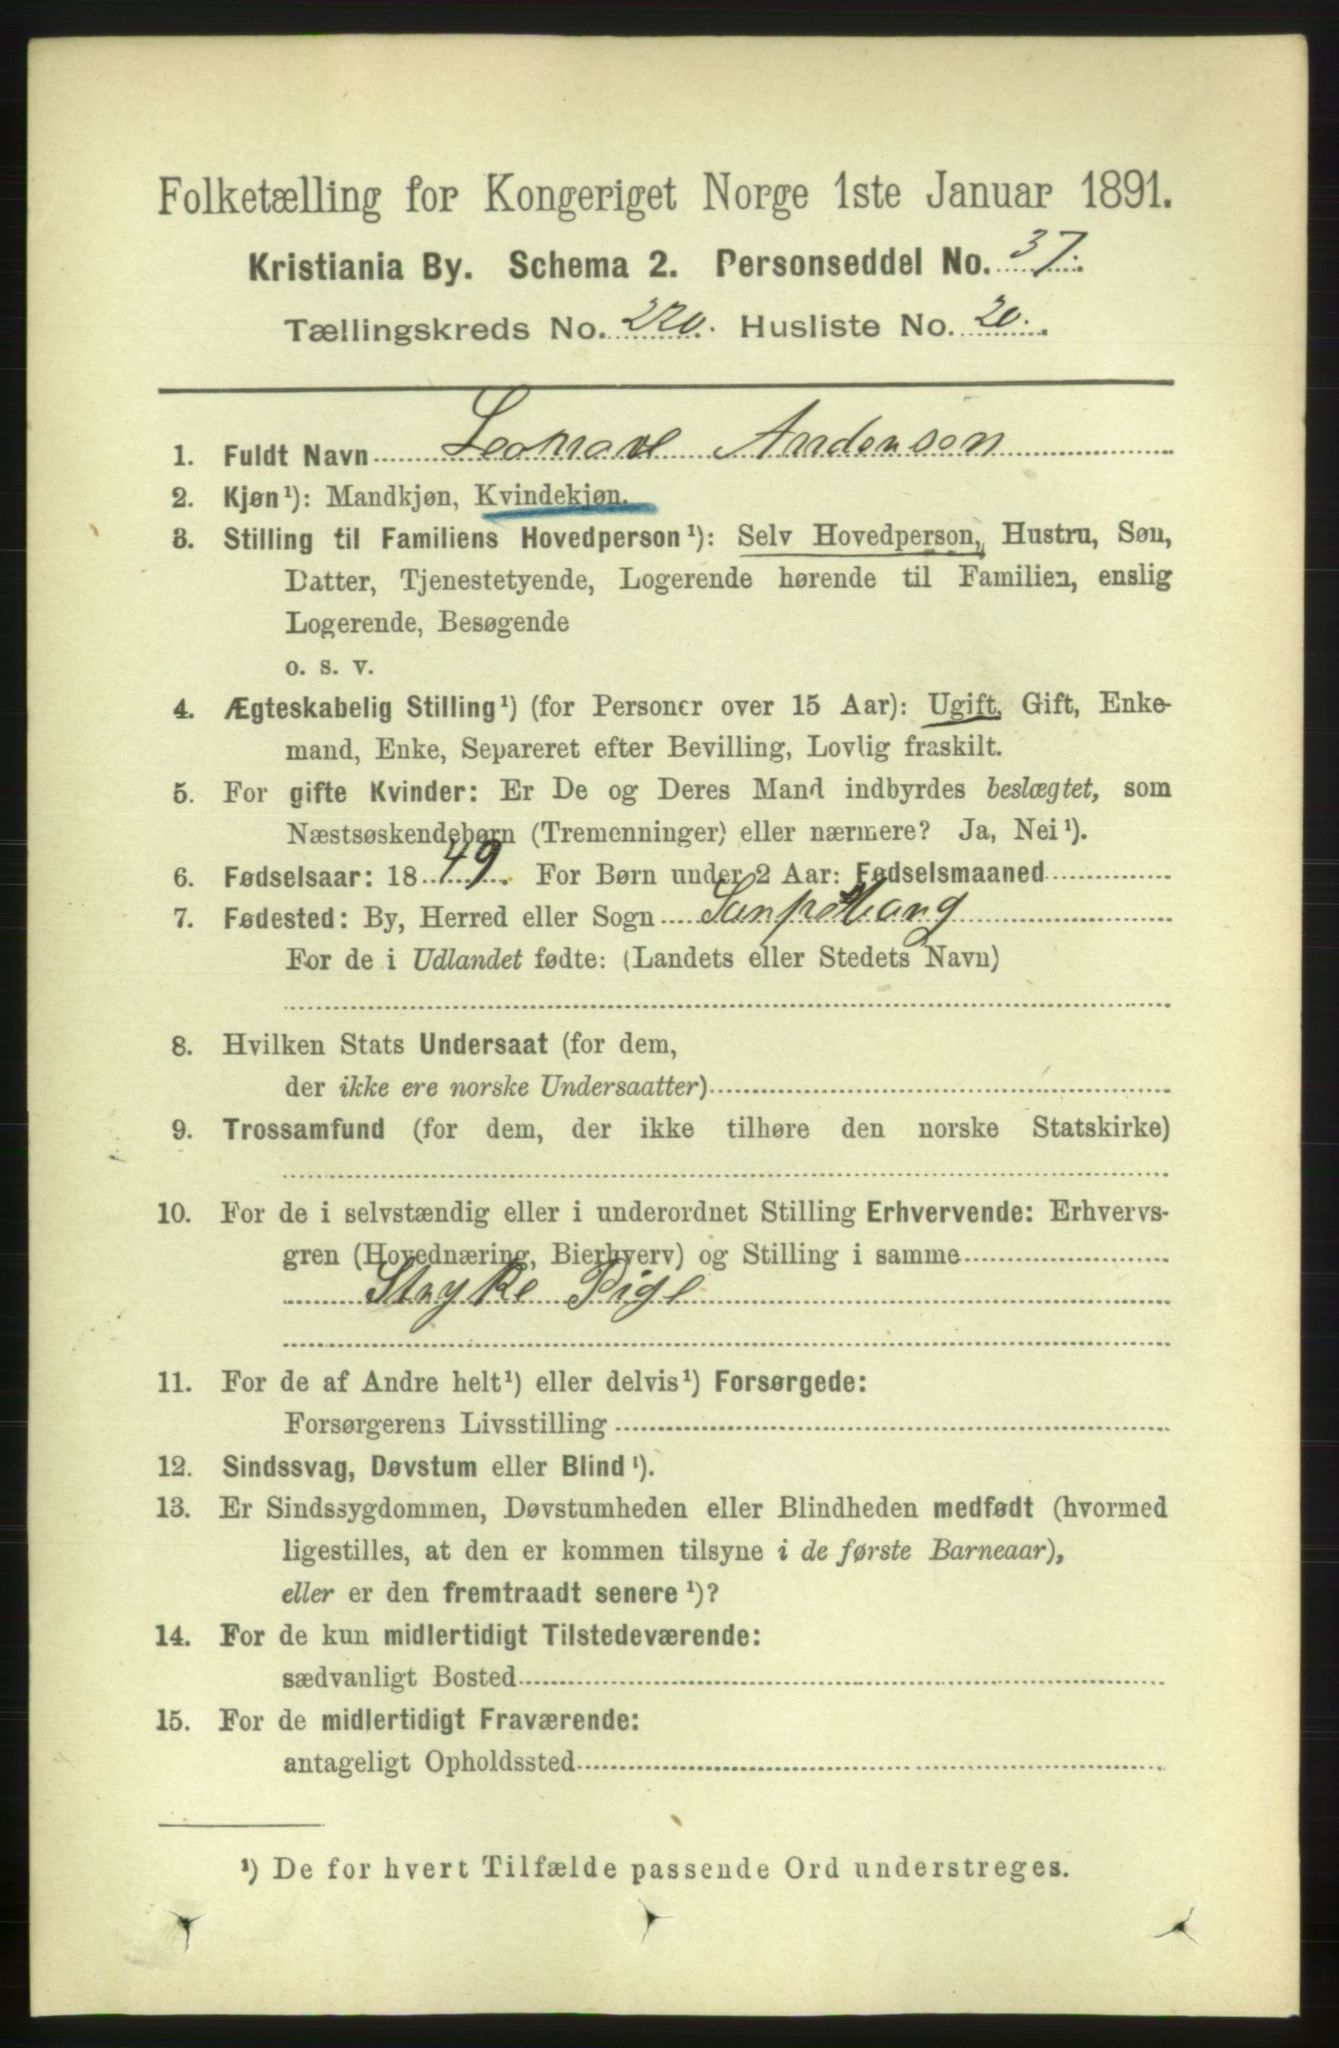 Folketælling for Kongeriget Norge 1ste Januar 1891.
Kristiania By. Schema 2. Personseddel No. 37.
Tællingskreds No. 220. Husliste No. 20.
1. Fuldt Navn Leonore Andersen
2. Kjøn¹): Mandkjøn, Kvindekjøn.
3. Stilling til Familiens Hovedperson¹): Selv Hovedperson, Hustru, Søn,
Datter, Tjenestetyende, Logerende hørende til Familien, enslig
Logerende, Besøgende
o. s. v.
4. Ægteskabelig Stilling¹) (for Personer over 15 Aar): Ugift, Gift, Enke-
mand, Enke, Separeret efter Bevilling, Lovlig fraskilt.
5. For gifte Kvinder: Er De og Deres Mand indbyrdes beslægtet, som
Næstsøskendebørn (Tremenninger) eller nærmere? Ja, Nei¹).
6. Fødselsaar: 1849. For Børn under 2 Aar: Fødselsmaaned
7. Fødested: By, Herred eller Sogn
For de i Udlandet fødte: (Landets eller Stedets Navn)
8. Hvilken Stats Undersaat (for dem,
der ikke ere norske Undersaatter)
9. Trossamfund (for dem, der ikke tilhøre den norske Statskirke)
10. For de i selvstændig eller i underordnet Stilling Erhvervende: Erhvervs-
gren (Hovednæring, Bierhverv) og Stilling i samme
Stryke Pige
11. For de af Andre helt¹) eller delvis¹) Forsørgede:
Forsørgerens Livsstilling
12. Sindssvag, Døvstum eller Blind¹).
13. Er Sindssygdommen, Døvstumheden eller Blindheden medfødt (hvormed
ligestilles, at den er kommen tilsyne i de første Barneaar),
eller er den fremtraadt senere¹)?
14. For de kun midlertidigt Tilstedeværende:
sædvanligt Bosted
15. For de midlertidigt Fraværende:
antageligt Opholdssted
¹) De for hvert Tilfælde passende Ord understreges.